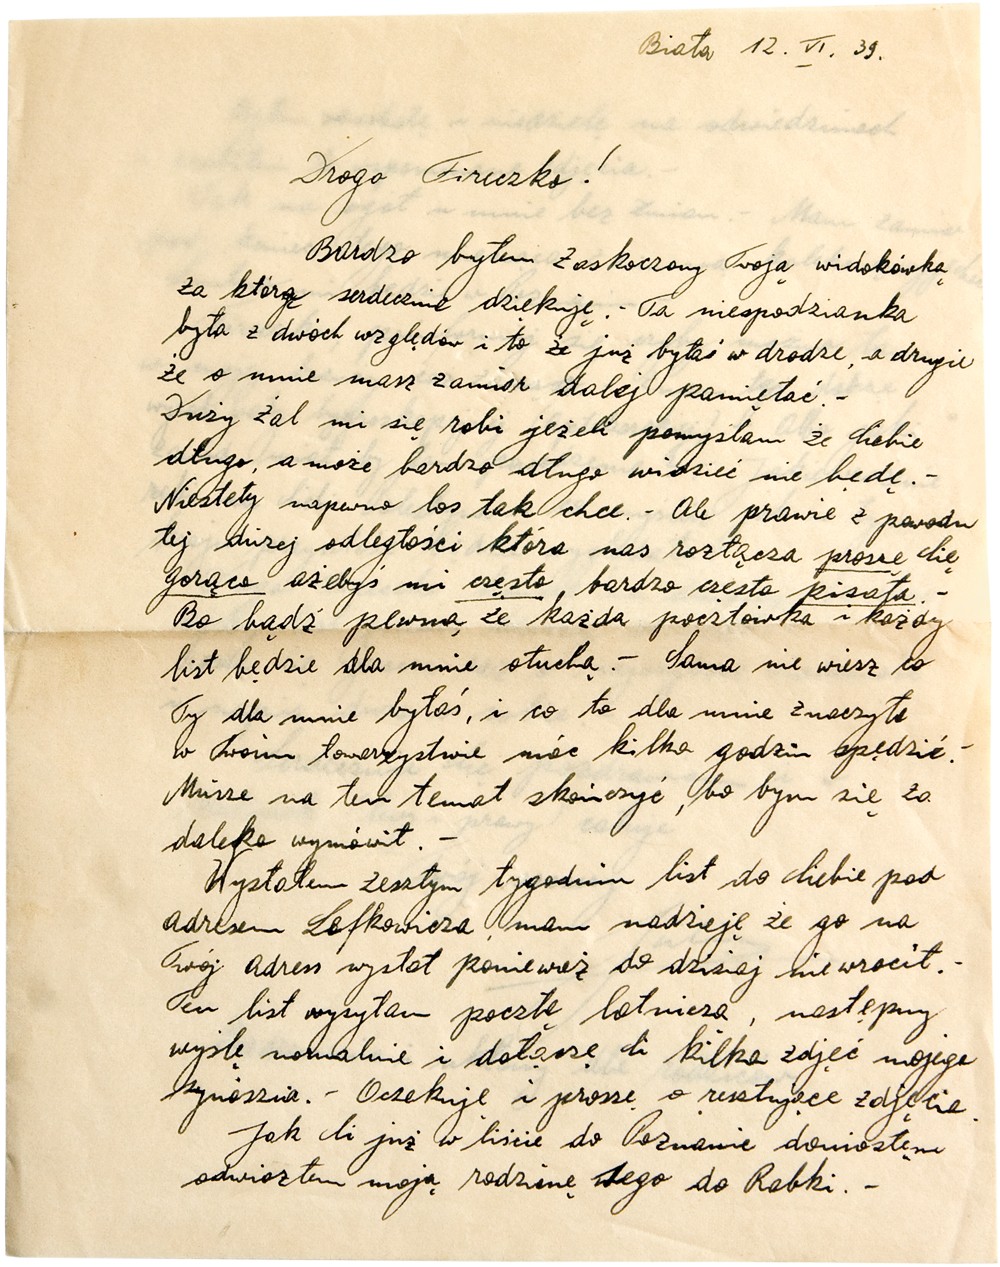 Biała 12. VI. 39.
Drogo Fireczko!
Bardzo byłem zaskoczony Twoją widokówką
za którą serdecznie dziękuję. - Ta niespodzianka
była z dwóch względów i to że już byłaś w drodze, a drugie
że o mnie masz zamiar dalej pamiętać. -
Duży żal mi się robi jeżeli pomyślam że Ciebie
długo, a może bardzo długo widzieć nie będę. -
Niestety napewno los tak chce. - Ale prawie z powodu
tej dużej odległości która nas rozłącza proszę Cię
gorąco ażebyś mi często, bardzo często pisała. -
Bo bądź pewna, że każda pocztówka i każdy
list będzie dla mnie otuchą. - Sama nie wiesz co
Ty dla mnie byłaś, i co to dla mnie znaczyło
w Twoim towarzystwie móc kilka godzin spędzić. -
Muszę na ten temat skończyć, bo bym się za
daleko wymówił. -
Wysłałem zeszłym tygodniu list do Ciebie pod
adresem Lefkowicza, mam nadzieję że go na
Twój adress wysłał ponieważ do dzisiaj nie wrócił. -
Ten list wysyłam pocztą lotniczą, następny
wyślę normalnie i dołączę Ci kilka zdjęć mojego
synósznia. - Oczekuję i proszę o resztujące zdjęcia.
Jak Ci już w liście do Poznanie doniosłem
odwiozłem moją rodzinę 1ego do Rabki. -